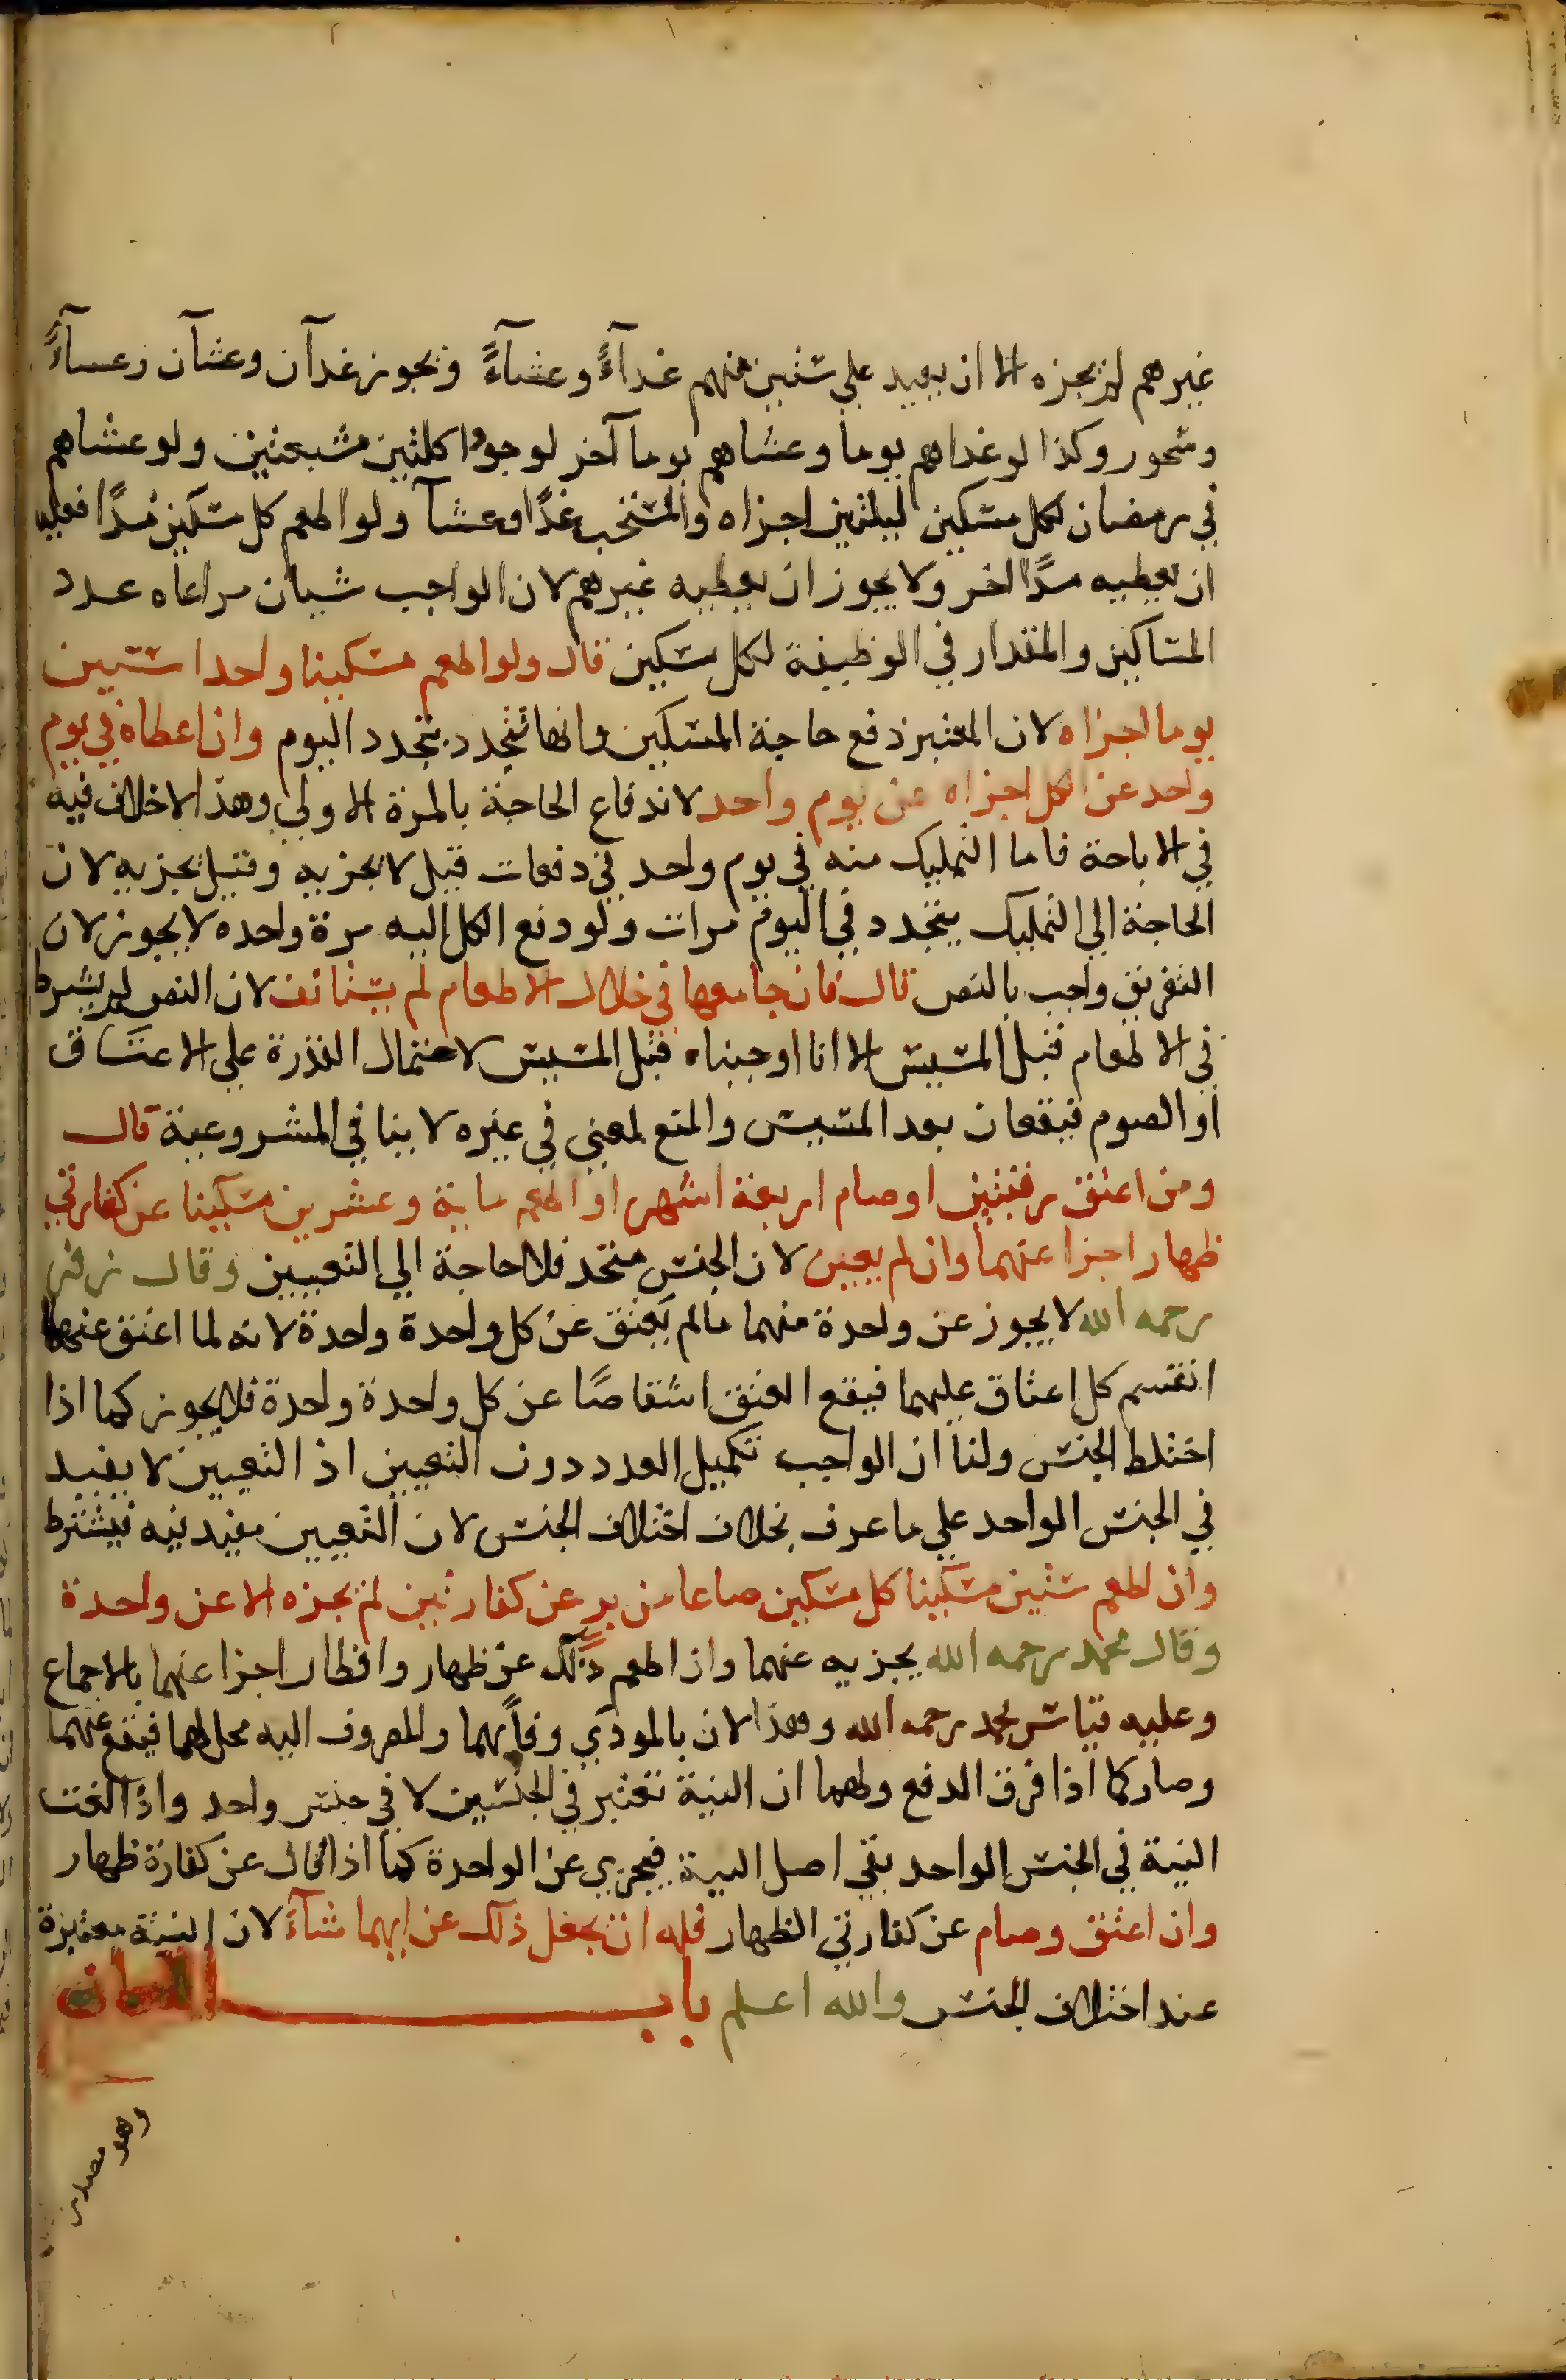 غيرهم لم يجزه الا ان يعيد علي ستين منهم غدآءً وعشآءً ويجوز غدآن وعشآن وعسآءً
وسحور وكذا لو غداهم يوما وعشاهم يوما آخر لوجود اكلتين مشبعتين ولو عشاهم
في رمضان لكل مسكين ليلتين اجزاه والمستحب غدًا وعشآ ولو اطعم كل مسكين مُدًا فعليه
ان يعطيه مدًا اخر ولا يجوز ان يعطيه غيرهم لان الواجب شيان مراعاه عدد
المساكين والمقدار في الوظيفة لكل مسكين قال ولو اطعم مسكينا واحدا ستين
يوما اجزاه لان المعتبر دفع حاجة المسكين وانها تتجدد بتجدد اليوم وان اعطاه في يوم
واحد عن الكل اجزاه عن يوم واحد لاندفاع الحاجة بالمرة الاولي وهذا لا خلاف فيه
في الاباحة فاما التمليك منه في يوم واحد في دفعات قيل لا يجزيه وقيل يجزيه لان
الحاجة الي التمليك يتجدد في اليوم مرات ولو دفع الكل اليه مرة واحده لا يجوز لان
التفريق واجب بالنص قال فان جامعها في خلال الاطعام لم يستانف لان النص لم يشرط
في الاطعام قبل المسيس الا انا اوجبناه قبل المسيس لاحتمال القدرة علي الاعتاق
او الصوم فيقعان بعد المسيس والمنع لمعني في غيره لا ينافي المشروعية قال
ومن اعتق رقبتين او صام اربعة اشهر او اطعم ماية وعشرين مسكينا عن كفارتي
ظهار اجزا عنهما وان لم يعين لان الجنس متحد فلا حاجة الي التعيين وقال زفر
رحمه الله لا يجوز عن واحدة منهما مالم يَعتق عن كل واحدة واحدة لانه لما اعتق عنهما
انقسم كل اعتاق عليهما فيقع العتق اشقاصًا عن كل واحدة واحدة فلا يجوز كما اذا
اختلط الجنس ولنا ان الواجب تكميل العدد دون التعيين اذ التعيين لا يفيد
في الجنس الواحد علي ما عرف بخلاف اختلاف الجنس لان التعيين مفيد فيه فيشترط
وان اطعم ستين مسكينا كل مسكين صاعا من بر عن كفارتين لم يجزه الا عن واحدة
وقال محمد رحمه الله يجزيه عنهما وان اطعم ذلك عن ظهار وافطار اجزا عنهما بالاجماع
وعليه قياس محمد رحمه الله وهذا لان بالمودي وفاً بهما والمصروف اليه محل لهما فيقع عنهما
وصار كما اذا فرق الدفع ولهما ان النية تعتبر في الجنسين لا في جنس واحد واذا لغت
النية في الجنس الواحد بقي اصل النية فيجزي عن الواحدة كما اذا قال عن كفارة ظهار
وان اعتق وصام عن كفارتي الظهار فله ان يجعل ذلك عن ايهما شآءَ لان النية معتبرة
عند اختلاف الجنس والله اعلم باب اللعان
وهو مصدر